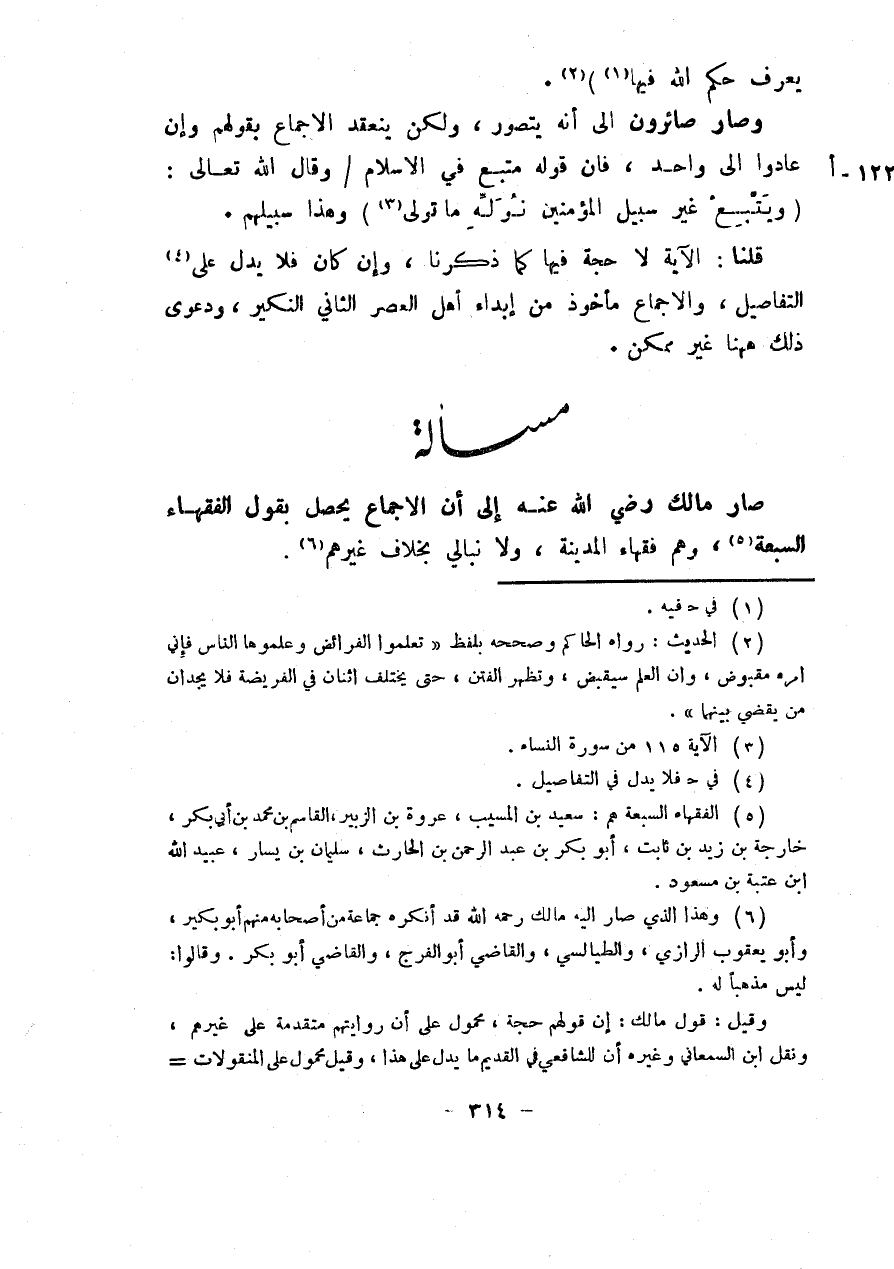 يعرف حكم الله فيها(١) )(٢) .
وصار صائرون الى أنه يتصور ، ولكن ينعقد الاجماع بقولهم وإن
عادوا الى واحد ، فان قوله متبع في الاسلام / وقال الله تعالى :
١٢٢ - أ
( ويَتَّبِعْ غير سبيل المؤمنين نُوَلِّهِ ما تولى(٣) ) وهذا سبيلهم .
قلنا : الآية لا حجة فيها كما ذكرنا ، وإن كان فلا يدل على(٤)
التفاصيل ، والاجماع مأخوذ من إبداء أهل العصر الثاني النكير ، ودعوى
ذلك ههنا غير ممكن .
مسألة
صار مالك رضي الله عنه إلى أن الاجماع يحصل بقول الفقهاء
السبعة(٥) ، وهم فقهاء المدينة ، ولا نبالي بخلاف غيرهم(٦) .
(١) في حـ فيه .
(٢) الحديث : رواه الحاكم وصححه بلفظ « تعلموا الفرائض وعلموها الناس فإني
امرء مقبوض ، وان العلم سيقبض ، وتظهر الفتن ، حتى يختلف اثنان في الفريضة فلا يجدان
من يقضي بينهما » .
(٣) الآية ١١٥ من سورة النساء .
(٤) في حـ فلا يدل في التفاصيل .
(٥) الفقهاء السبعة هم : سعيد بن المسيب ، عروة بن الزبير ، القاسم بن محمد بن أبي بكر ،
خارجة بن زيد بن ثابت ، أبو بكر بن عبد الرحمن بن الحارث ، سليمان بن يسار ، عبيد الله
ابن عتبة بن مسعود .
(٦) وهذا الذي صار اليه مالك رحمه الله قد أنكره جماعة من أصحابه منهم أبو بكير ،
وأبو يعقوب الرازي ، والطيالسي ، والقاضي أبو الفرج ، والقاضي أبو بكر . وقالوا:
ليس مذهباً له .
وقيل : قول مالك : إن قولهم حجة ، محمول على أن روايتهم متقدمة على غيرهم ،
ونقل ابن السمعاني وغيره أن للشافعي في القديم ما يدل على هذا ، وقيل محمول على المنقولات =
- ٣١٤ -